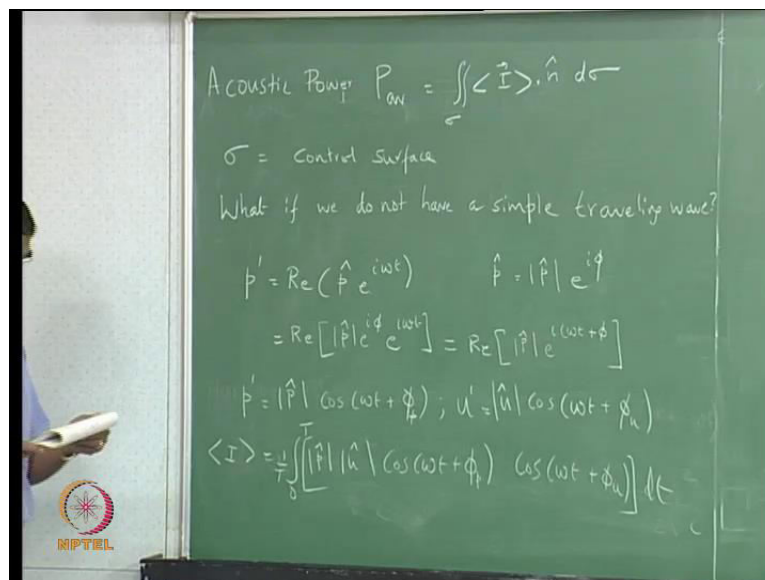 Acoustic Power P_av = ∬_σ <I⃗>. n̂ dσ
σ = control surface
What if we do not have a simple traveling wave?
p' = Re(p̂ e^{iωt})    p̂ = |p̂| e^{iϕ}
= Re[|p̂| e^{iϕ} e^{iωt}] = Re[|p̂| e^{i(ωt+ϕ)}]
p' = |p̂| cos(ωt + ϕ_p) ; u' = |û| cos(ωt + ϕ_u)
<I> = 1/T ∫_0^T [|p̂| |û| cos(ωt + ϕ_p) cos(ωt + ϕ_u)] dt
NPTEL